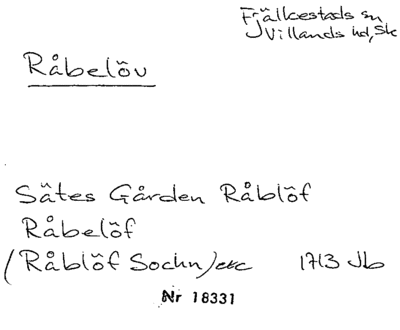 Fjälkestads sn
Villands hd, Sk
Råbelöv
Sätes Gården Råblöf
Råbelöf
(Råblöf Sochn) etc 1713 Jb
Nr 18331